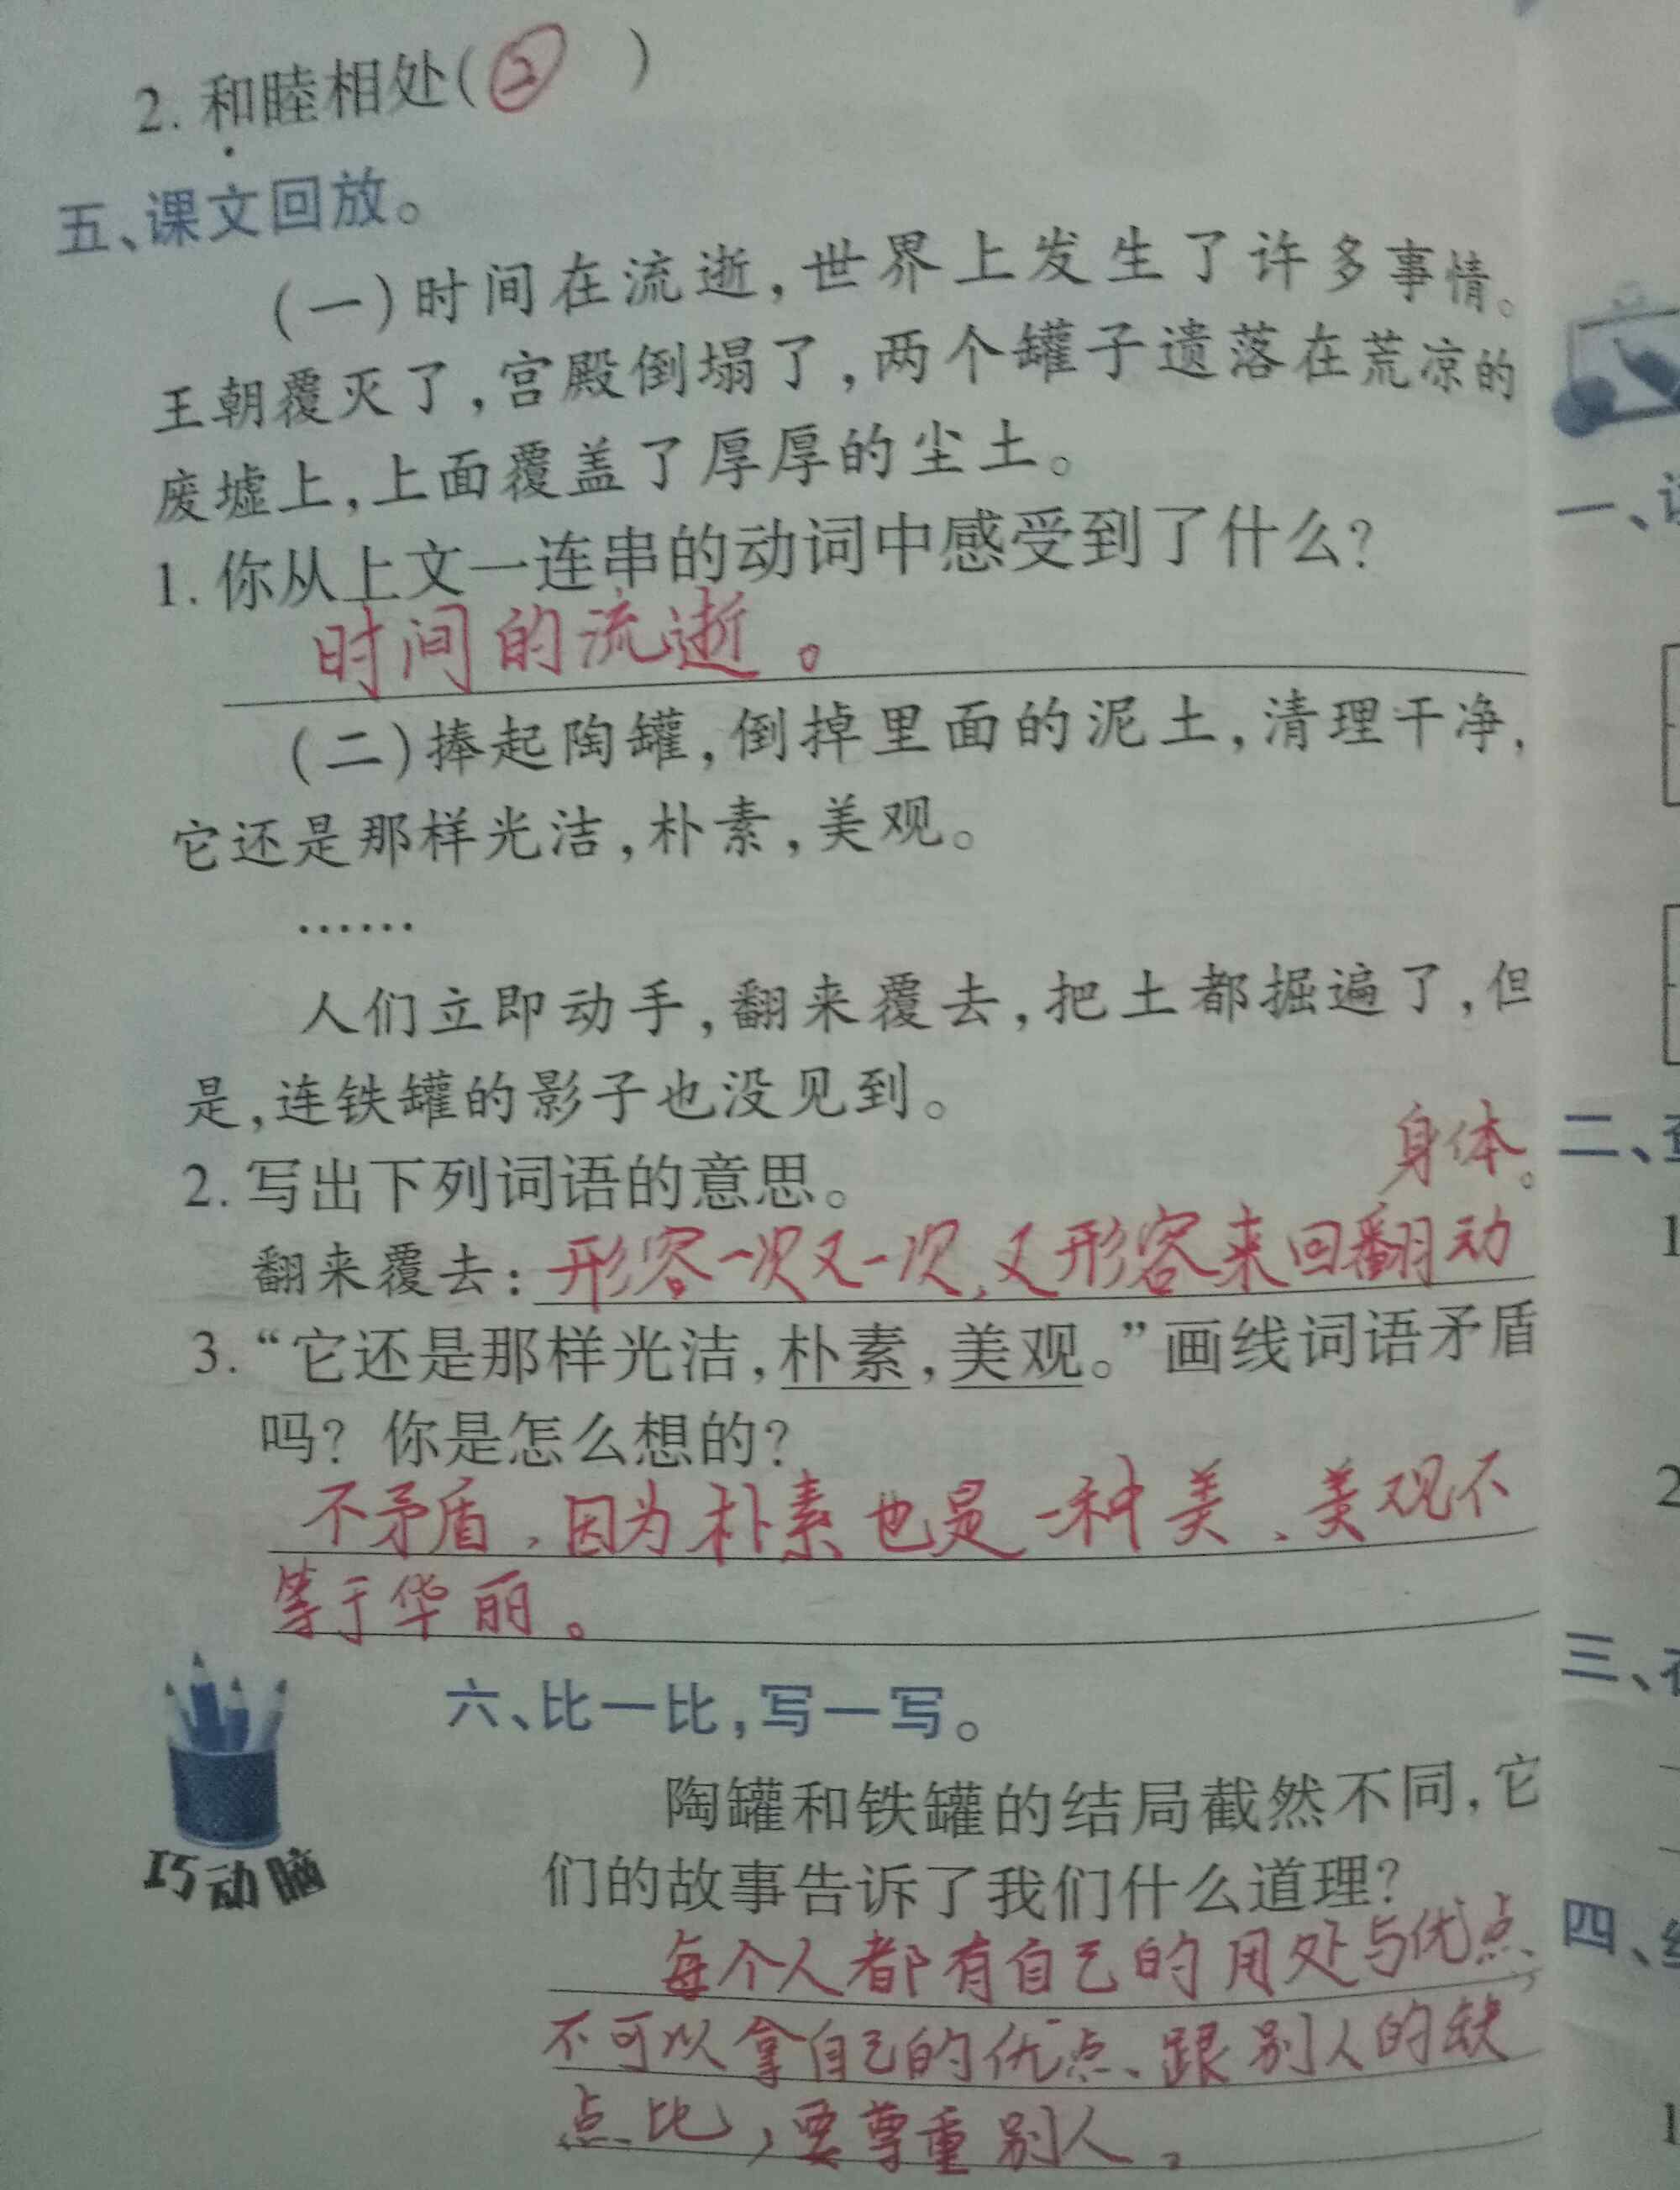 2. 和睦相处(② )
五、课文回放。
(一)时间在流逝,世界上发生了许多事情。
王朝覆灭了,宫殿倒塌了,两个罐子遗落在荒凉的
废墟上,上面覆盖了厚厚的尘土。
1. 你从上文一连串的动词中感受到了什么?
时间的流逝。
(二)捧起陶罐,倒掉里面的泥土,清理干净,
它还是那样光洁,朴素,美观。
……
人们立即动手,翻来覆去,把土都掘遍了,但
是,连铁罐的影子也没见到。
2. 写出下列词语的意思。
身体。
翻来覆去:形容一次又一次,又形容来回翻动
3. “它还是那样光洁,朴素,美观。”画线词语矛盾
吗? 你是怎么想的?
不矛盾,因为朴素也是一种美、美观不
等于华丽。
六、比一比,写一写。
陶罐和铁罐的结局截然不同,它
们的故事告诉了我们什么道理?
每个人都有自己的用处与优点,
不可以拿自己的优点、跟别人的缺
点比,要尊重别人。
巧动脑
一、
二、
1
2
三、
四、
1